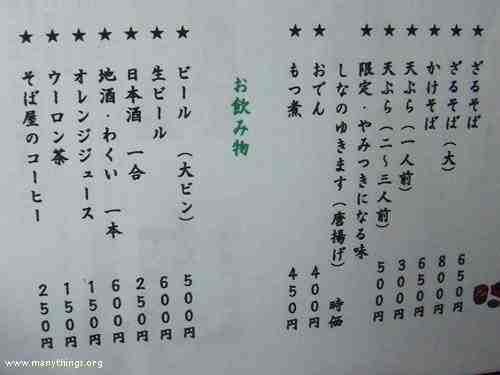 ★ ざるそば 650円
★ ざるそば(大) 800円
★ かけそば 650円
★ 天ぷら(一人前) 300円
★ 天ぷら(二〜三人前) 500円
★ 限定・やみつきになる味
しなのゆきます(唐揚げ) 時価
★ おでん 400円
★ もつ煮 450円
お飲み物
★ ビール (大ビン) 500円
★ 生ビール 600円
★ 日本酒 一合 250円
★ 地酒・わくい 一本 600円
★ オレンジジュース 150円
★ ウーロン茶 150円
★ そば屋のコーヒー 250円
www.manythings.org